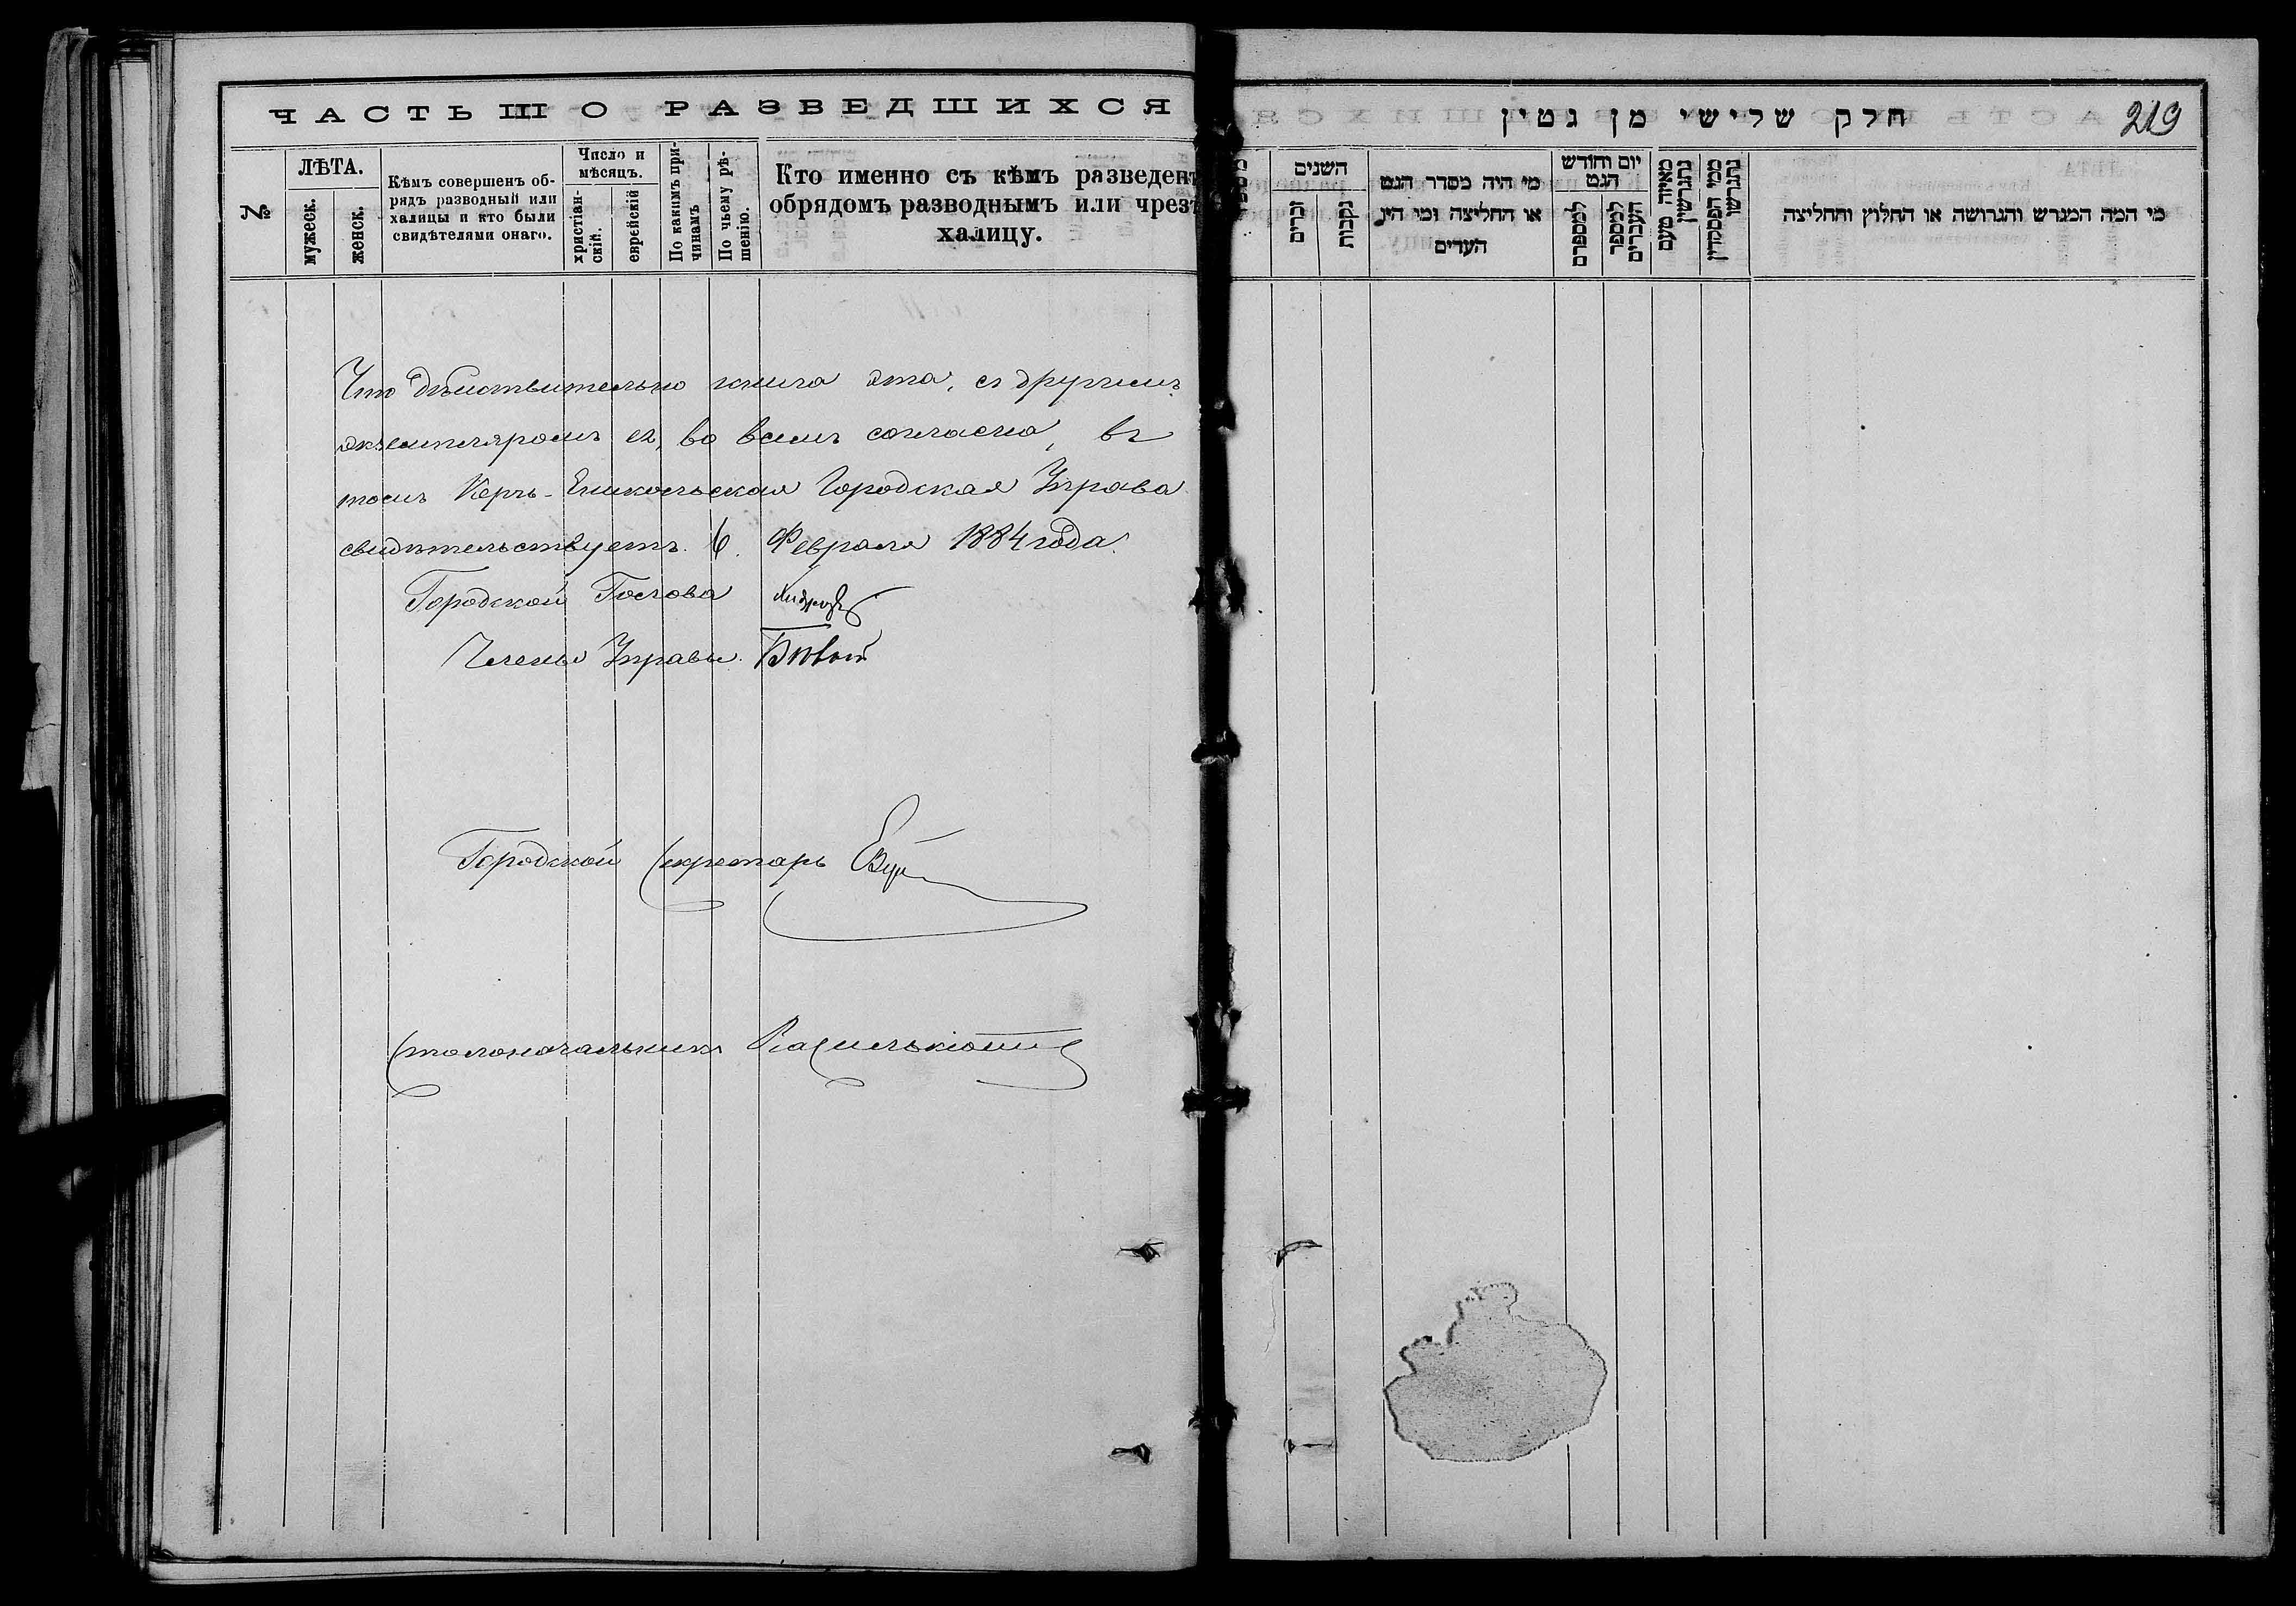 ЧАСТЬ III О РАЗВЕДШИХСЯ
№
ЛѢТА.
мужеск.
женск.
Кѣмъ совершенъ об-
рядъ разводный или
халицы и кто были
свидѣтелями онаго.
Число и
мѣсяцъ.
христіан-
скій.
еврейскій
По какимъ при-
чинамъ
По чьему рѣ-
шенію.
Кто именно съ кѣмъ разведенъ
обрядомъ разводнымъ или чрезъ
халицу.
Что дѣйствительно книга эта, съ другимъ
экземпляромъ ея, во всемъ согласна, въ
томъ Керчь-Еникольская Городская Управа
свидѣтельствуетъ. 6. Февраля 1884 года.
Городской Голова
Члены Управы.
Городской Секретарь
Столоначальникъ
חלק שלישי מן גטין
219
השנים
זכרים
נקבות
מי היה מסדר הגט
או החליצה ומי היו
העדים
יום וחודש
הגט
למספרם
למספר
העברים
מאיזה טעם
נתגרשו
ממי הפסק דין
נתגרשו
מי המה המגרש והגרושה או החלוץ והחליצה